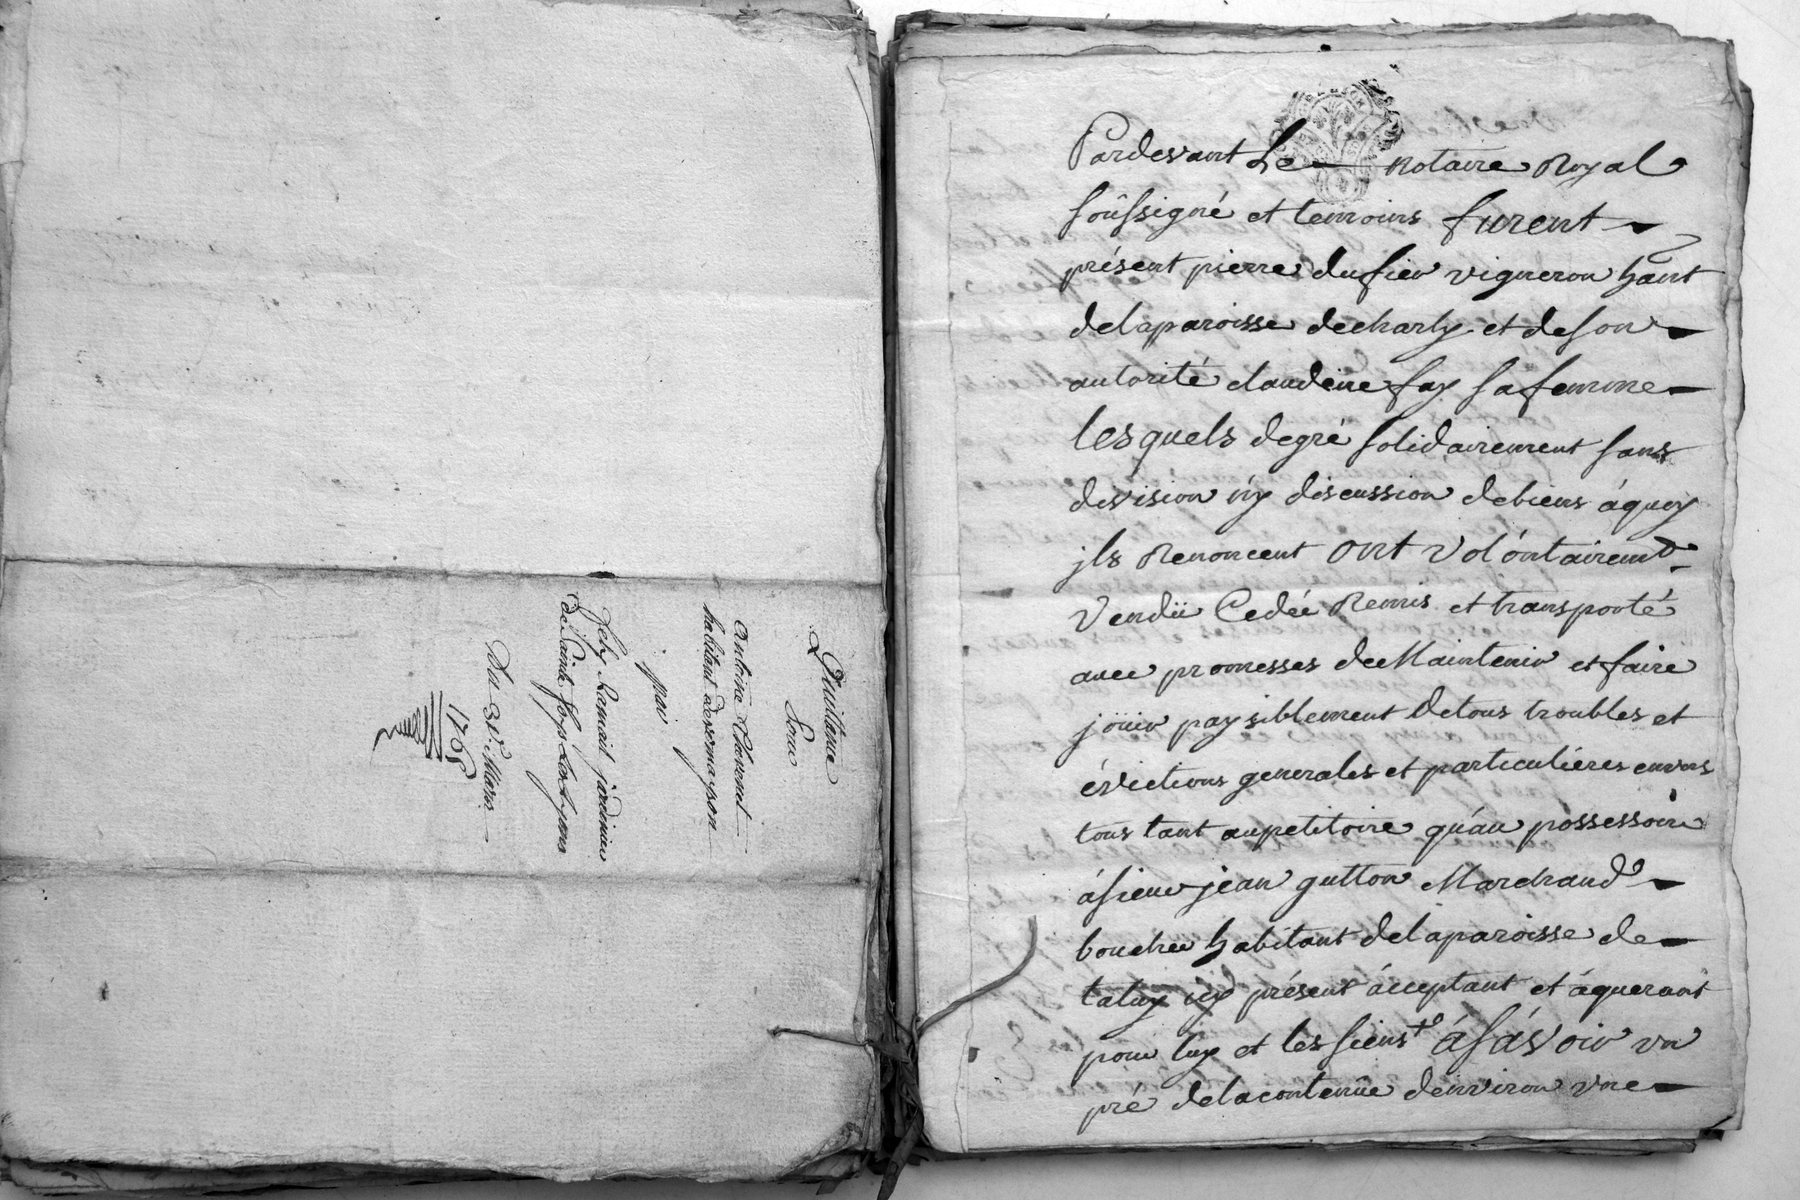 Quittance
Pour
Antoine Thevenet
habitant de vernayson
par
Feli Ramait jardinier
de Sainte foy Les Lyons
Du 31e. Mars
1768
Pardevant Le notaire Royal
soussigné et temoins furent
présent pierre dufieu vigneron hant
delaparoisse decharly et deson
autorité claudeine fay safemme
lesquels degré solidairement sans
devision ny discussion debiens áquoy
jls Renoncent ont Volóntairemt
Vendü Cedée Remis et transporté
avec promesses deMaintenir et faire
joüir paysiblement detous troubles et
évictions generales et particuliéres envers
tous tant aupetitoire qu'au possessoire
ásieur jean gutton Marchand
boucher habitant delaparoisse de
taluy icy présent ácceptant et áquerant
pour luy et les siens + ásávoir vn
pré delacontenüe denviron vne